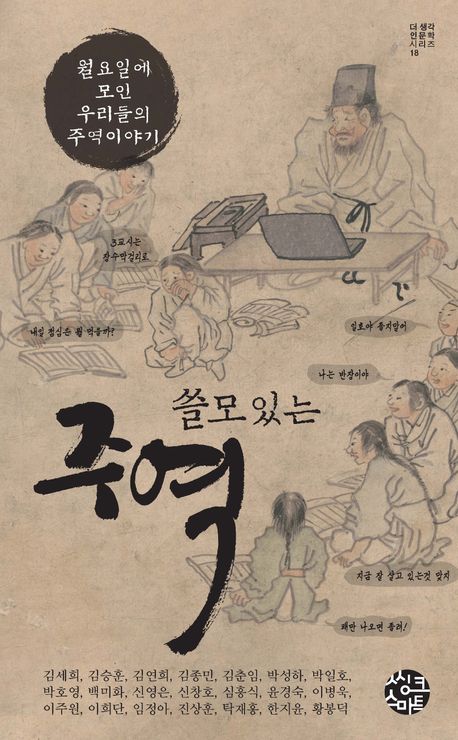 더생각
인문학
시리즈
18
월요일에
모인
우리들의
주역이야기
3교시는
장수막걸리로
내일 점심은 뭘 먹을까?
일호야 졸지말어
나는 반장이야
쓸모있는
주역
지금 잘 살고 있는것 맞지
괘만 나오면 졸려!
김세희, 김승훈, 김연희, 김종민, 김춘임, 박성하, 박일호,
박호영, 백미화, 신영은, 신창호, 심홍식, 윤경숙, 이병욱,
이주원, 이희단, 임정아, 진상훈, 탁재홍, 한지윤, 황봉덕
씽크
스마트